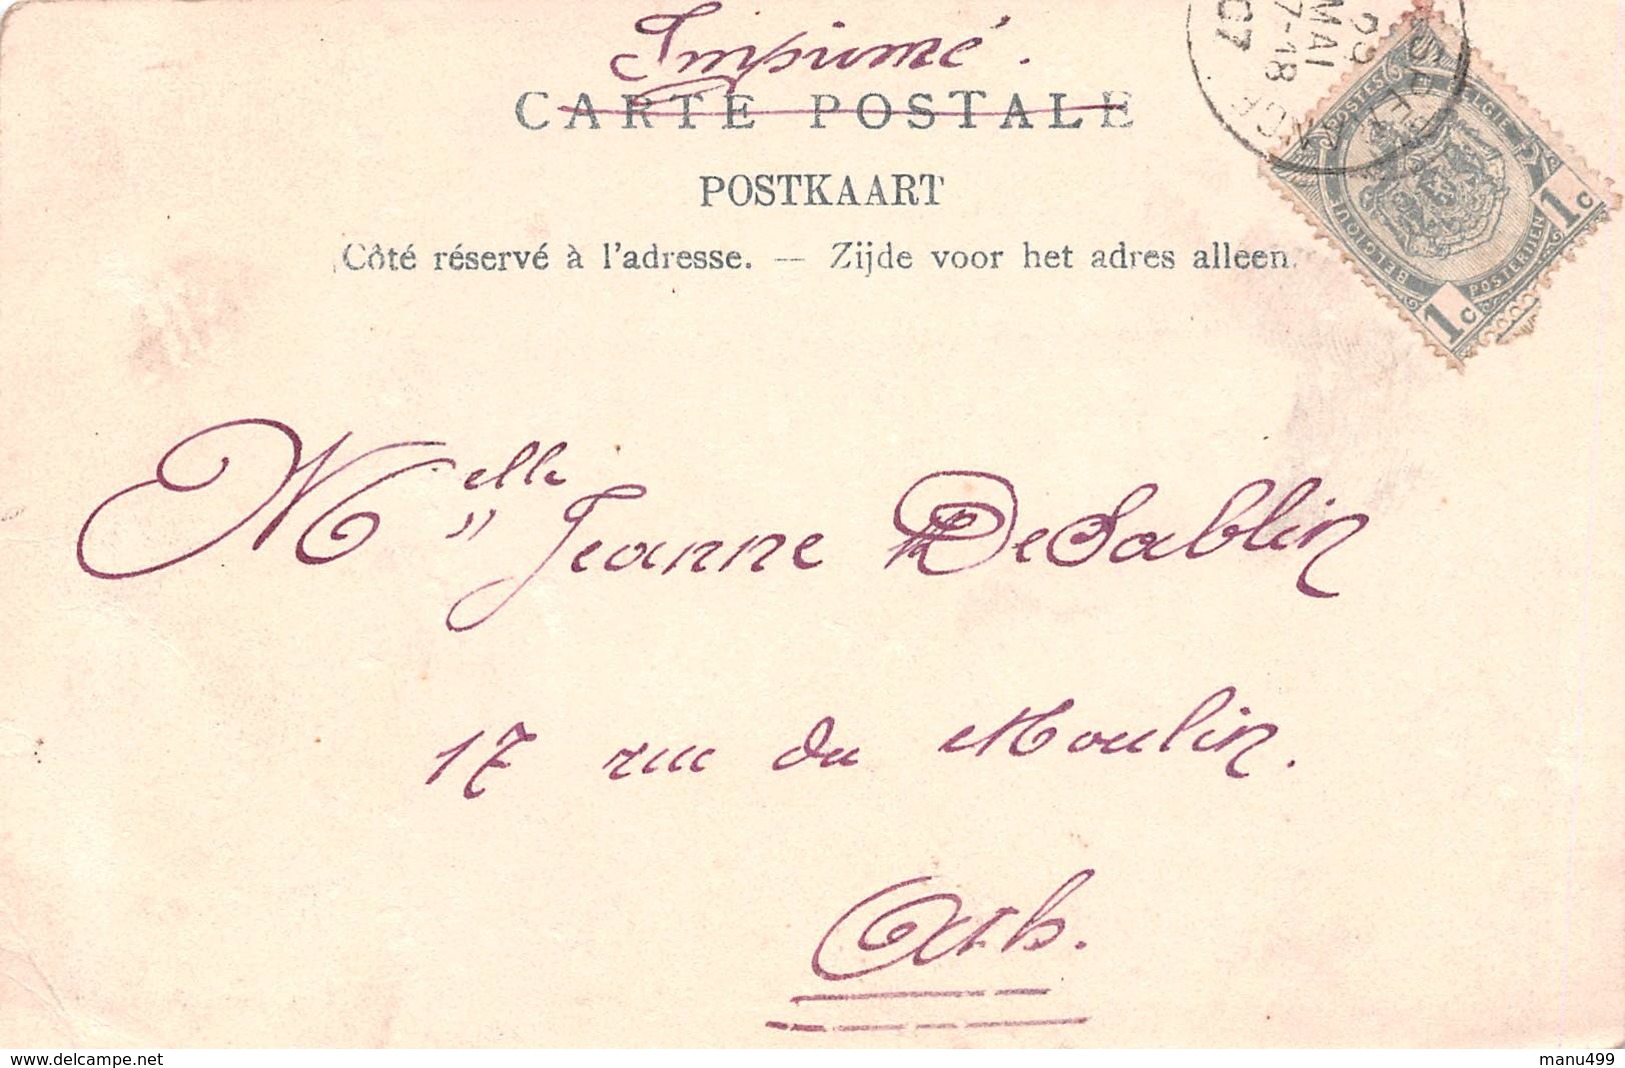 Imprimé.
CARTE POSTALE
POSTKAART
Côté réservé à l'adresse. — Zijde voor het adres alleen.
MAI
7-18
07
POSTES BELGIE
BELGIQUE POSTERIJEN
1c
1c
Melle Jeanne DeSablin
17 rue du Moulin.
Ath.
www.delcampe.net
manu499